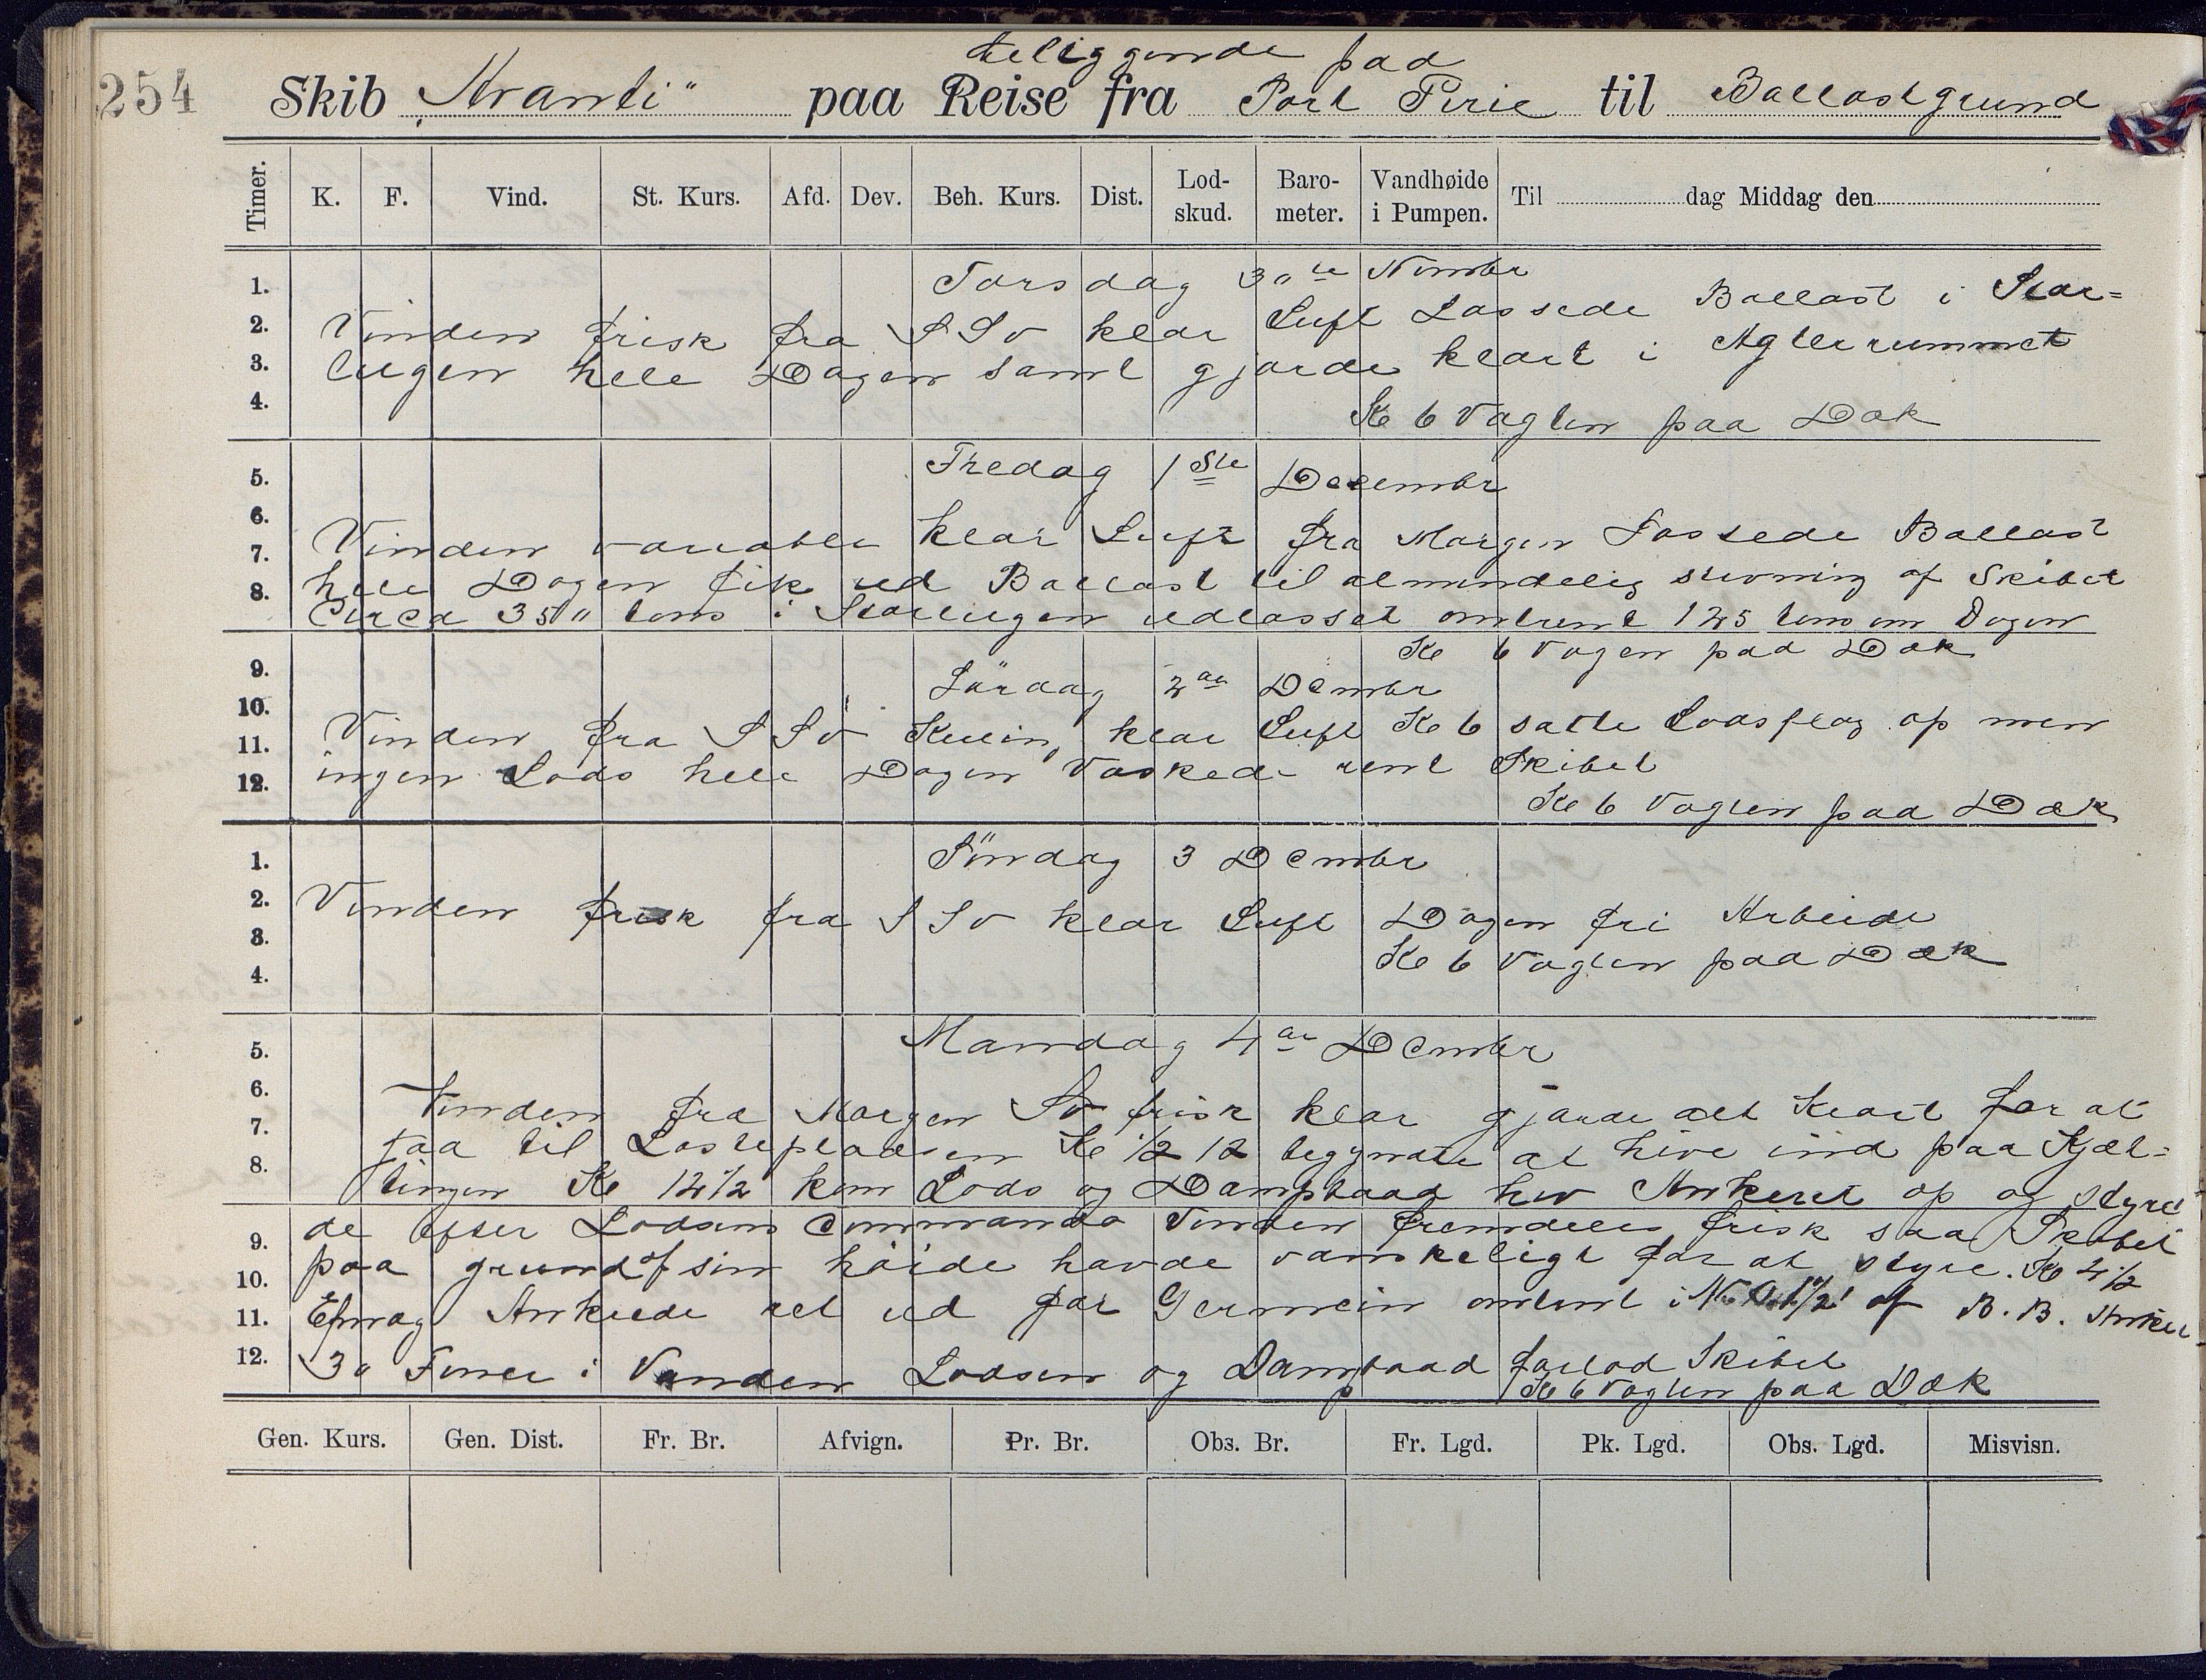 254
teliggende paa
Skib „Avanti" paa Reise fra Port Pirie til Ballastgrund
Timer. K. F. Vind. St. Kurs. Afd. Dev. Beh. Kurs. Dist. Lod-skud. Baro-meter. Vandhøide i Pumpen. Til dag Middag den
1. Torsdag 30te Novmbr
2. Vinden frisk fra SSv klar Luft Lossede Ballast i Stor=
3. lugen hele Dagen samt gjorde klart i Agterrummet
4. Kl 6 Vagten paa Dæk
5. Fredag 1ste Desembr
6.
7. Vinden variable klar Luft fra Morgen Lossede Ballast
8. hele Dagen fik ud Ballast til almindelig stuvning af Skibet
Circa 350 tons i Storlugen udlosset omtrent 125 tons om Dagen
9. Kl 6 Vagen paa Dæk
10. Lördag 2den Dcmbr
11. Vinden fra SSv Kuling klar Luft Kl 6 satte Lodsflag op men
12. ingen Lods hele Dagen Vaskede rent Skibet
Kl 6 Vagten paa Dæk
1. Söndag 3 Dcmbr
2. Vinden frisk fra SSv klar Luft Dagen fri Arbeide
3. Kl 6 Vagten paa Dæk
4.
5. Mandag 4de Dcmbr
6.
7. Vinden fra Morgen Sv frisk klar gjorde alt Klart for at
8. faa til Lastepladsen Kl 1/2 12 begyndte at hive ind paa Kjæt=
tingen Kl 12 1/2 kom Lods og Dampbaad hiv Ankeret op og styre
9. de efter Lodsens Commando Vinden fremdeles frisk saa Skibet
10. paa grund af sin høide havde vanskeligt for at styre. Kl 4 1/2
11. Efmdg Ankrede ret ud for Germein omtrent i af B.B. Anker
12. 30 Favner i Vanden Lodsen og Dampbaad forlod Skibet
Kl 6 Vagten paa Dæk
Gen. Kurs. Gen. Dist. Fr. Br. Afvign. Pr. Br. Obs. Br. Fr. Lgd. Pk. Lgd. Obs. Lgd. Misvisn.